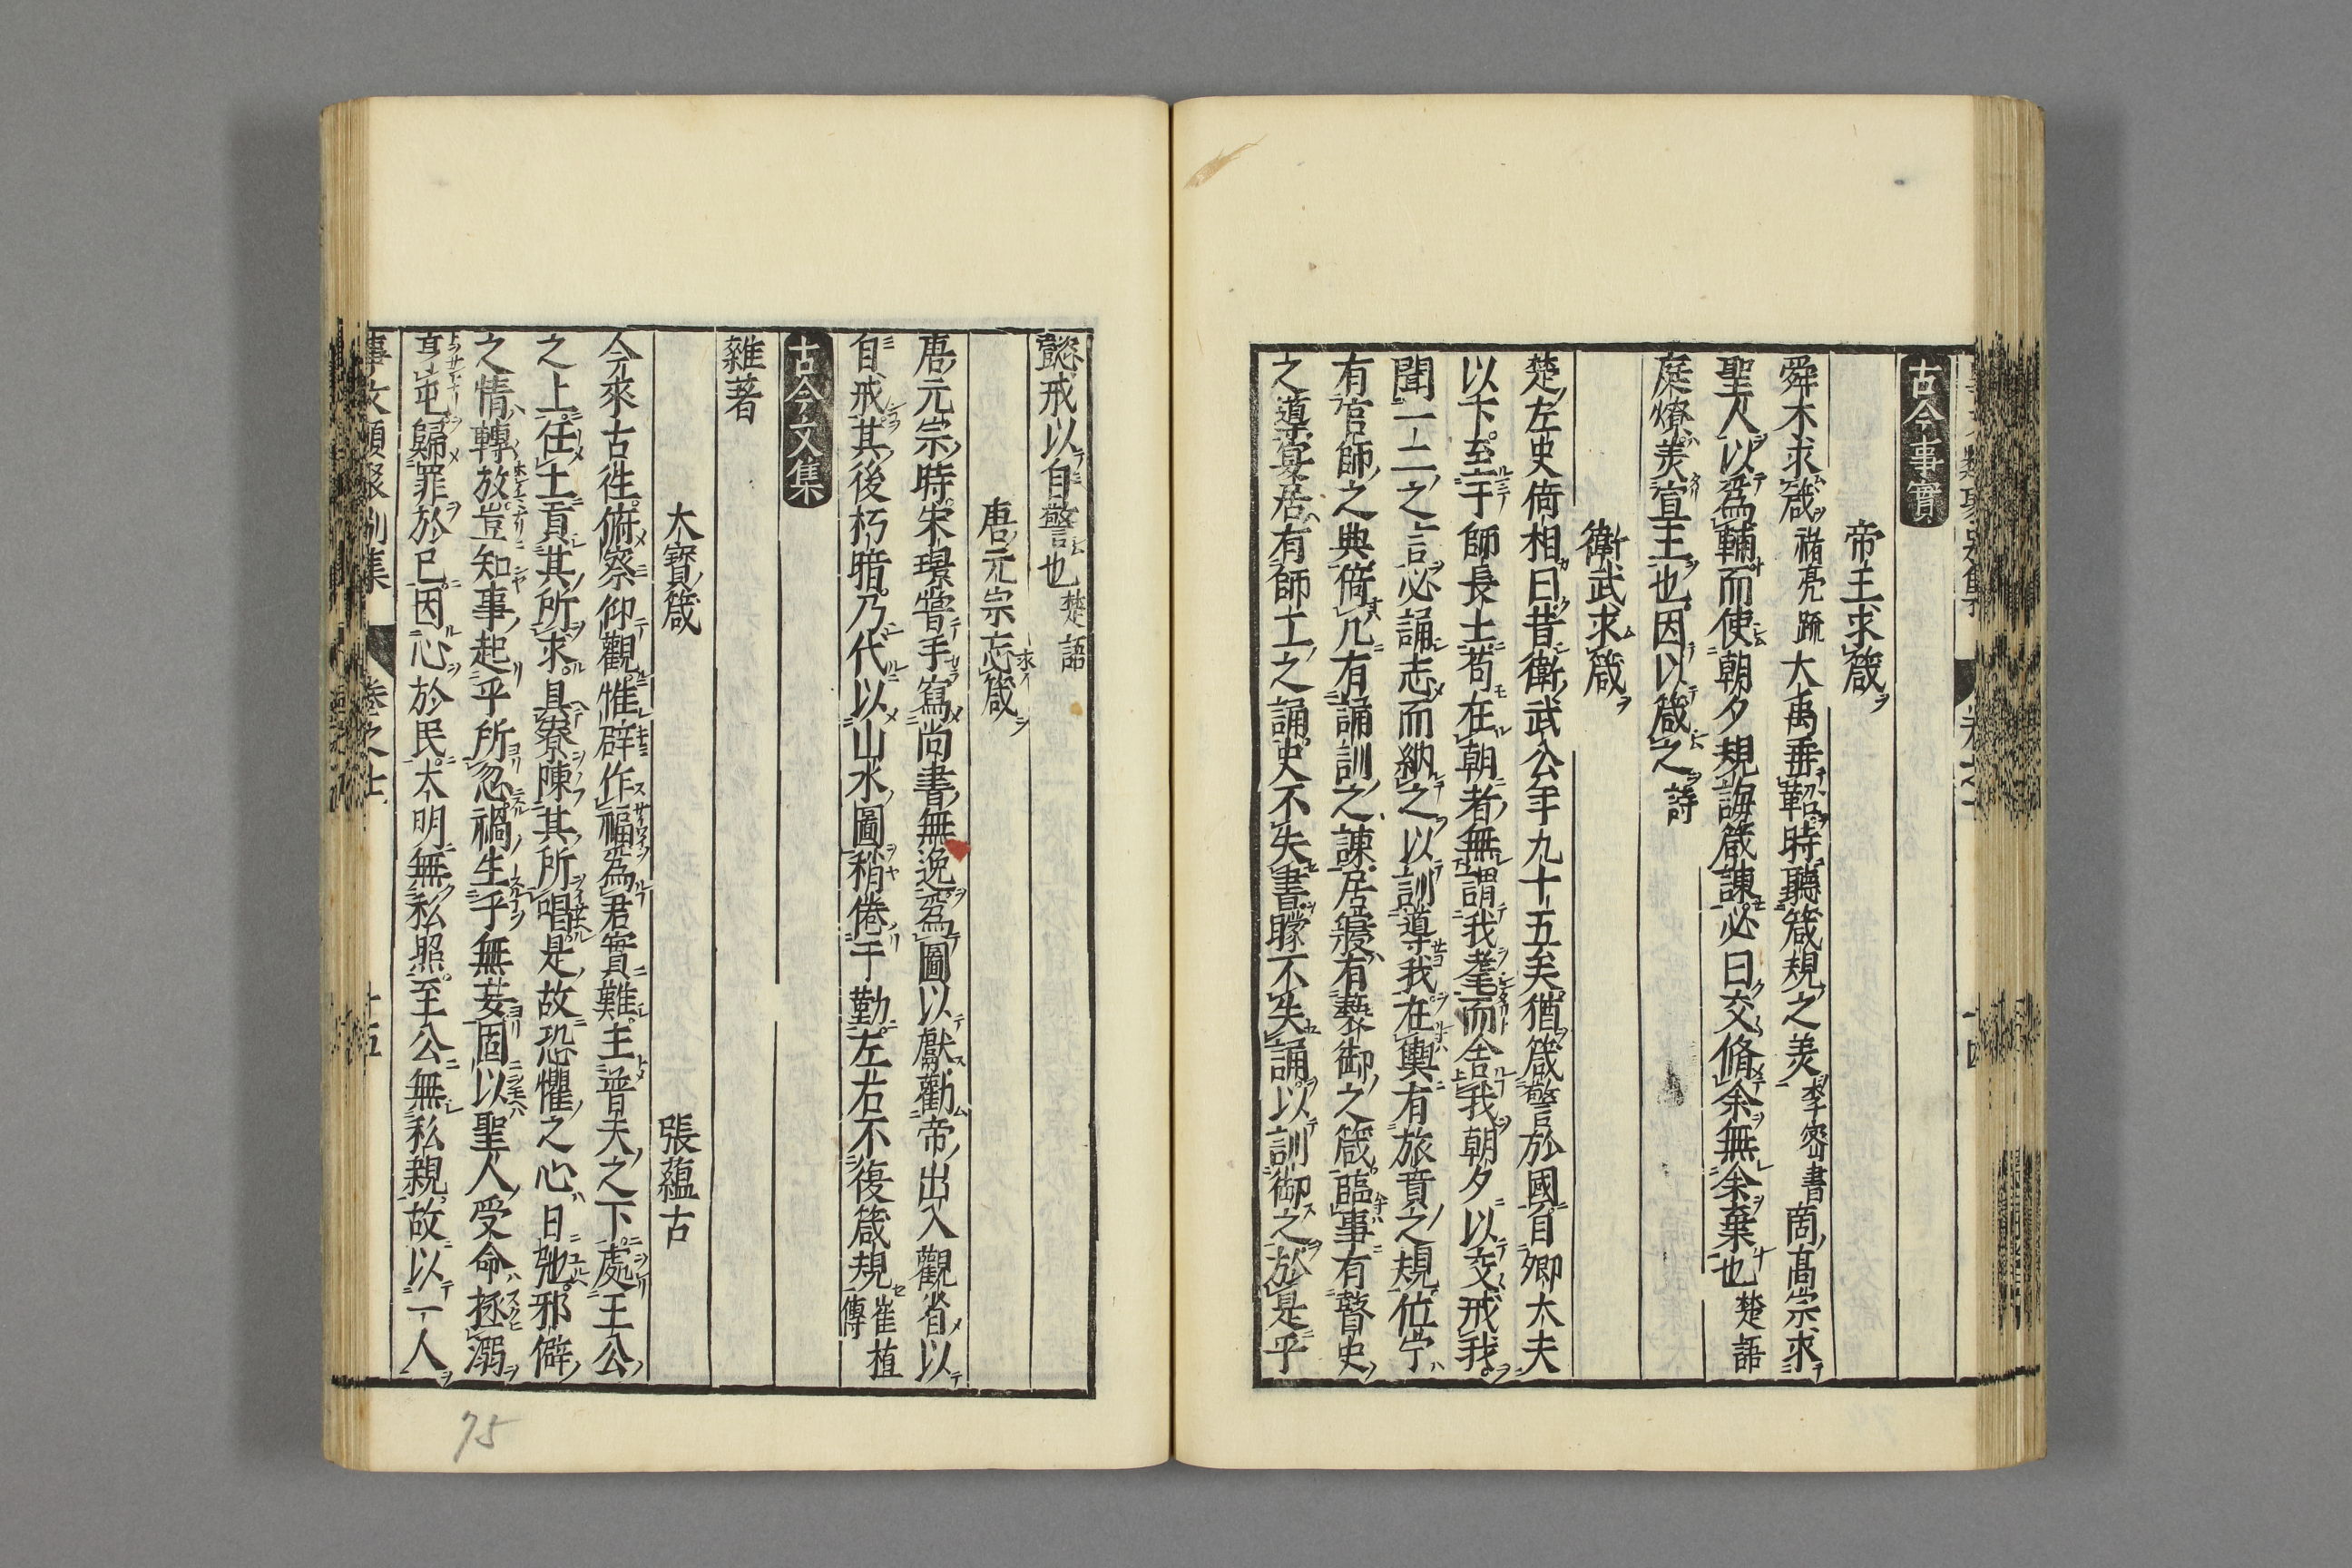 古今事實
帝王求箴
舜木求箴褚亮疏大禹垂鞀時聽箴規之美李密書商高宗求
聖人以爲輔而使朝夕規誨箴諫必曰交脩余無余棄也楚語
庭燎美宣王也因以箴之詩
衛武求箴
楚左史倚相曰昔衛武公年九十五矣猶箴警於國自卿大夫
以下至于師長士苟在朝者無謂我耄而舍我朝夕以交戒我
聞一二之言必誦志而納之以訓導我在輿有旅賁之規位宁
有官師之典倚几有誦訓之諫居寢有褻御之箴臨事有瞽史
之導宴居有師工之誦史不失書矇不失誦以訓御之於是乎
懿戒以自警也楚語
唐元宗忘箴
唐元宗時宋璟嘗手寫尚書無逸爲圖以獻勸帝出入觀省以
自戒其後朽暗乃代以山水圖稍倦于勤左右不復箴規崔植傳
古今文集
雜著
大寶箴 張蘊古
今來古徃俯察仰觀惟辟作福爲君實難主普天之下處王公
之上任土貢其所求具寮陳其所唱是故恐懼之心日弛邪僻
之情轉放豈知事起乎所忽禍生乎無妄固以聖人受命拯溺
亨屯歸罪於已因心於民大明無私照至公無私親故以一人
事文類聚別集 卷之七 十五
75